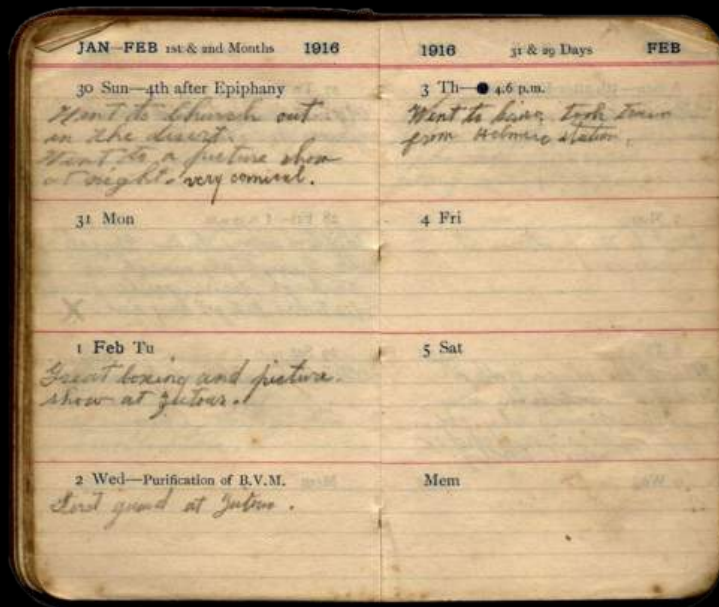 JAN—FEB 1st & 2nd Months 1916
30 Sun—4th after Epiphany
Went to Church out
in the desert.
Went to a picture show
at night. very comical.
31 Mon
1 Feb Tu
Great boxing and picture
show at Zeitoun.
2 Wed—Purification of B.V.M.
First guard at Zeitoun.
1916 31 & 29 Days FEB
3 Th—● 4.6 p.m.
Went to Cairo, took train
from station.
4 Fri
5 Sat
Mem